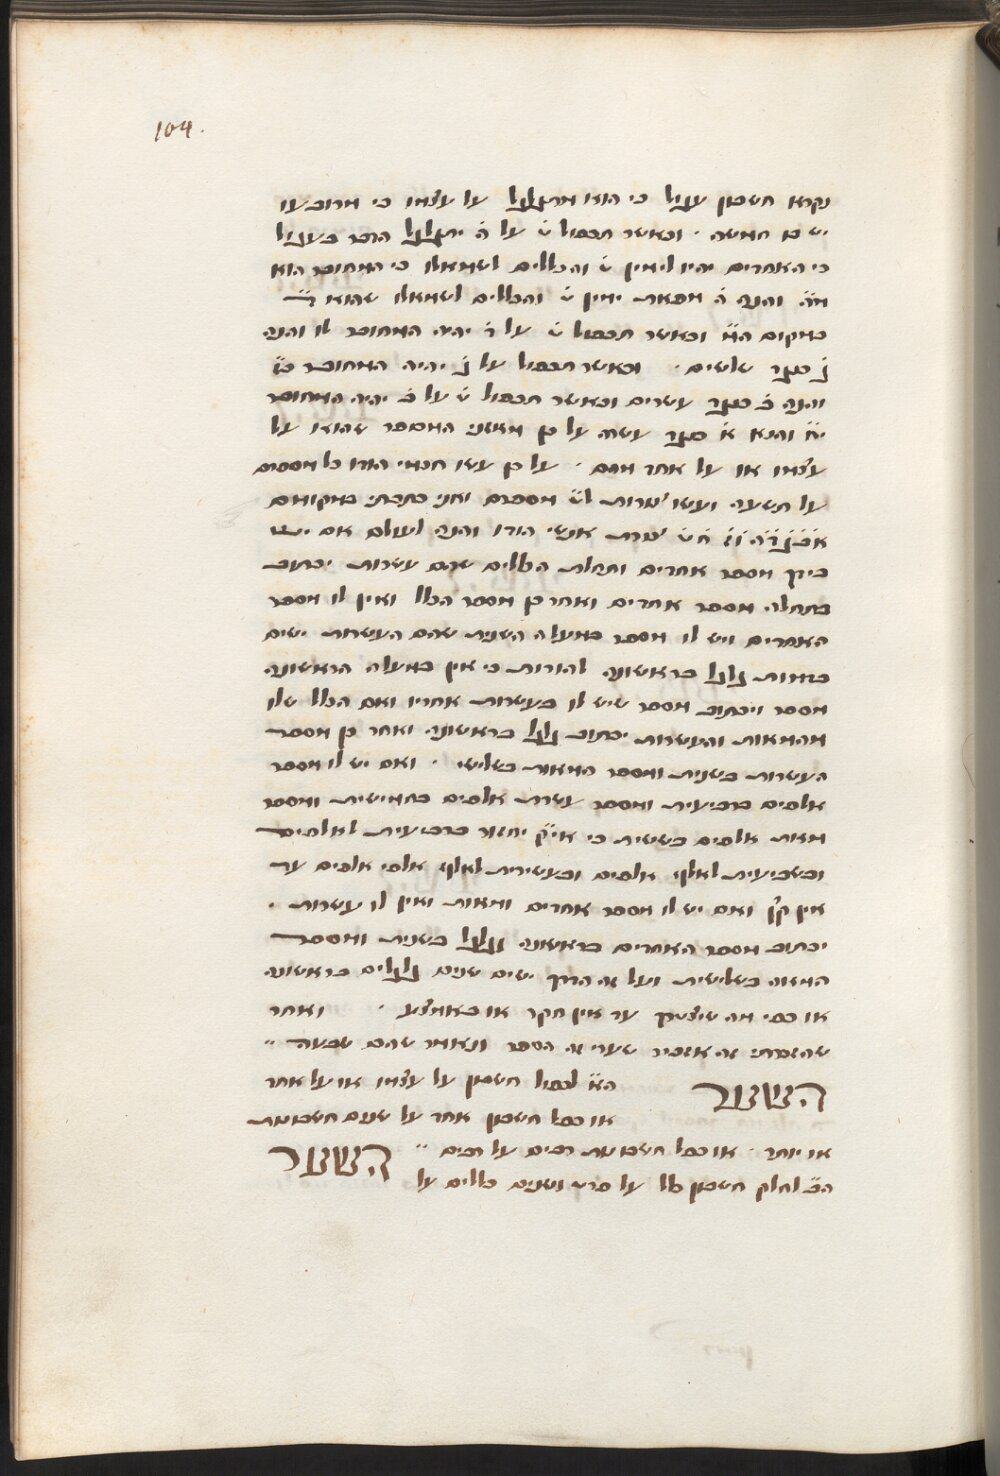 104.
נקרא חשבון עגול כי הוא מתגלגל על עצמו כי מרובעו
יש בו חמשה · וכאשר תכפול ט על ה יתגלגל הדבר בעגול
כי האחדים יהיו לימין ט והכללים לשמאלו כי המחובר הוא
מ״ה והנה ה מפאת ימין ט והכללים לשמאלו שהוא ד
במקום הא וכאשר תכפול ט על ד יהיה המחובר לו והנה
ג כנגד שלשים · וכאשר תכפול על ג יהיה המחובר כ״ז
והנה ב כנגד עשרים וכאשר תכפול ט על ב יהיה המחובר
י״ח והנא א כנגד עשרה על כן מאשני המספר שהוא על
עצמו או על אחד מהם · על כן עשו חכמי הודו כל מספרם
על תשעה ועשו צורות לט מספרם ואני כתבתי במקומם
אבגדהוזחט צורת אנשי הודו והנה לעולם אם יש
בידך מספר אחדים ותחלת הכללים שהם עשרות יכתוב
בתחלה מספר אחדים ואחר כן מספר הכלל ואין לו מספר
האחדים ויש לו מספר במעלה השנית שהם העשרות ישים
כדמות גלגל בראשונה להורות כי אין במעלה הראשונה
מספר ויכתוב מספר שיש לו בעשרות אחריו ואם הכלל שלו
מהמאות והעשרות יכתוב גלגל בראשונה ואחר כן מספר
העשרות בשנית ומספר המאות בשלישי · ואם יש לו מספר
אלפים ברביעית ומספר עשרת אלפים בחמישית ומספר
מאת אלפים בששית כי איק יחזור ברביעית לאלפים
ובשביעית לאלף אלפים ובעשירית לאלף אלפי אלפים עד
אין קץ ואם יש לו מספר אחדים ומאות ואין לו עשרות ·
יכתוב מספר האחדים בראשונה וגלגל בשנית ומספר
המאה בשלישית ועל זה הדרך ישים שנים גלגלים בראשונה
או כפי מה שיצטרך עד אין חקר או באמצע · ואחר
שהזכרתי זה אזכיר שערי זה הספר ונאמר שהם שבעה
השער הא לכפול חשבון על עצמו או על אחר
או כפל חשבון אחד על שנים חשבונות
או יותר · או כפל חשבונות רבים על רבים השער
הב לחלק חשבון כלל על פרט ושנים כללים על